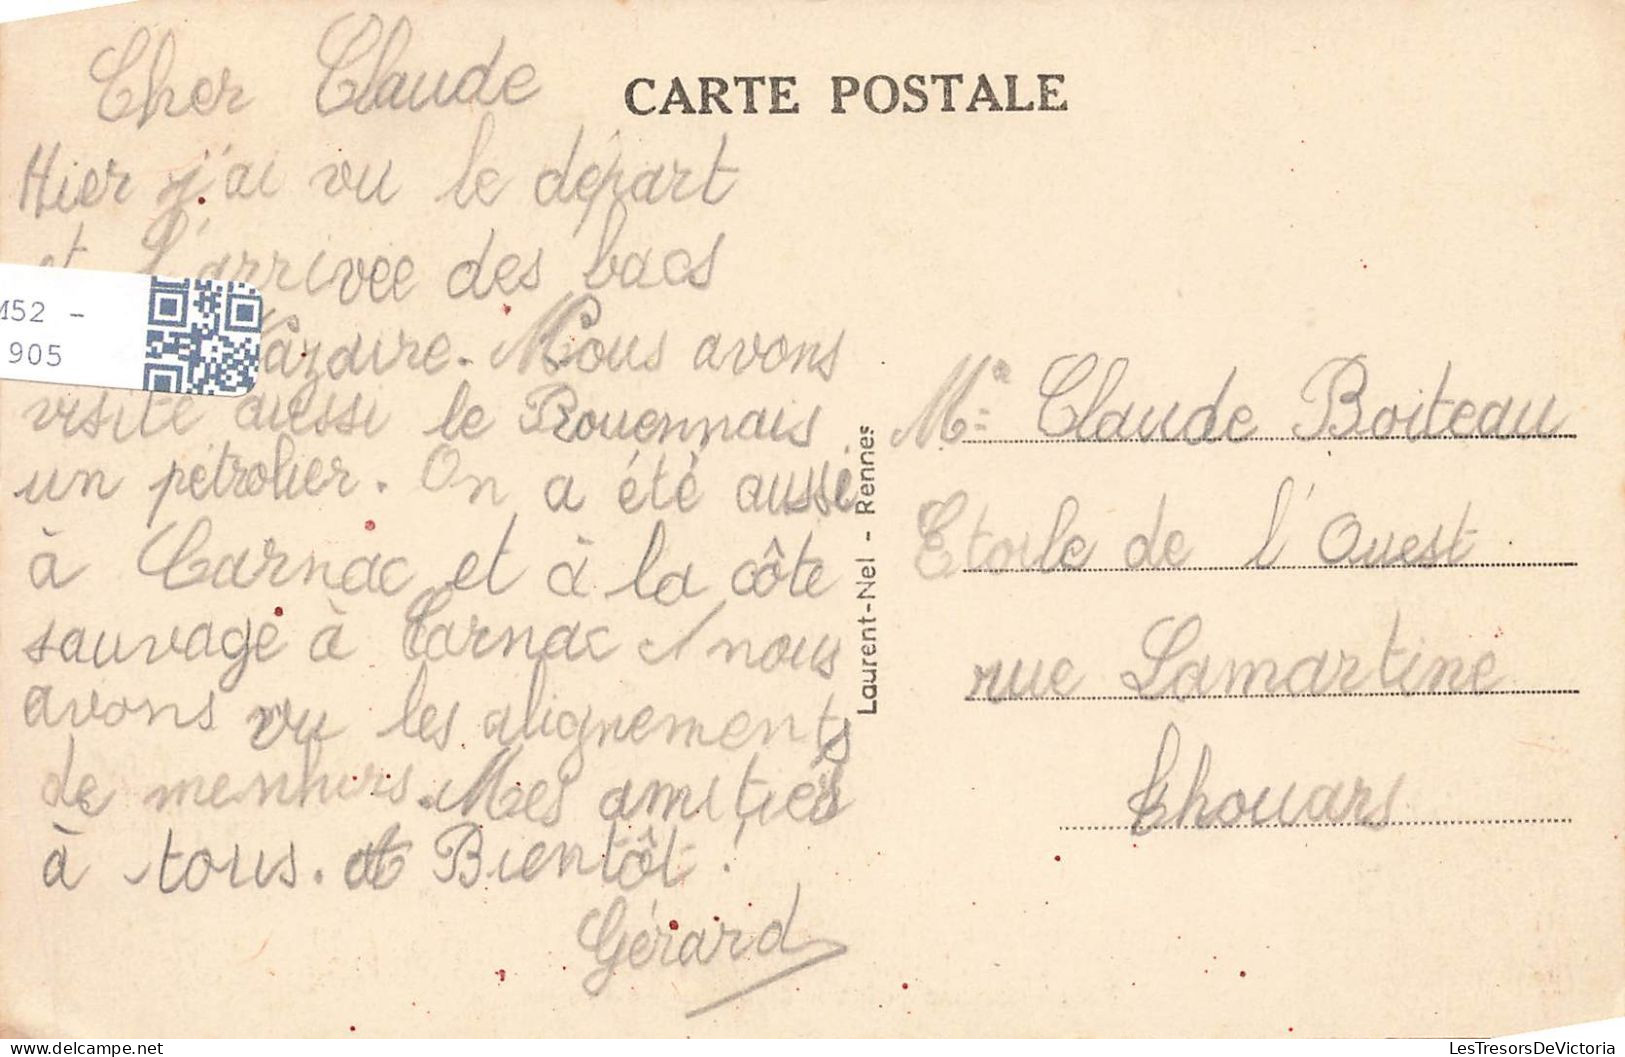 CARTE POSTALE
Cher Claude
Hier j'ai vu le départ
et l'arrivée des bacs
Nazaire. Nous avons
visité aussi le Rouennais
un pétrolier. On a été aussi
à Carnac et à la côte
sauvage à Carnac nous
avons vu les alignements
de menhirs. Mes amitiés
à tous. Bientôt !
Gérard
M52 -
905
Laurent-Nel - Rennes
Claude Boiteau
Etoile de l'Ouest
rue Lamartine
Thouars
LesTresorsDeVictoria
https://www.delcampe.net